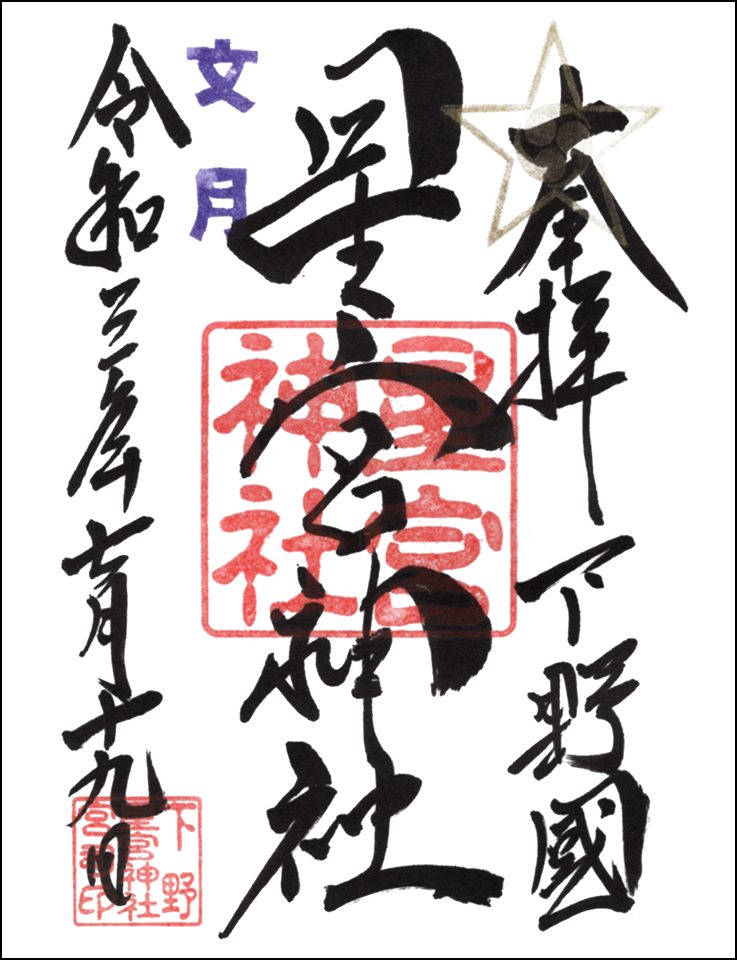 奉拝 下野國
星宮神社
星宮
神社
文月
令和三年七月十九日
下野
星宮神社
宮司印